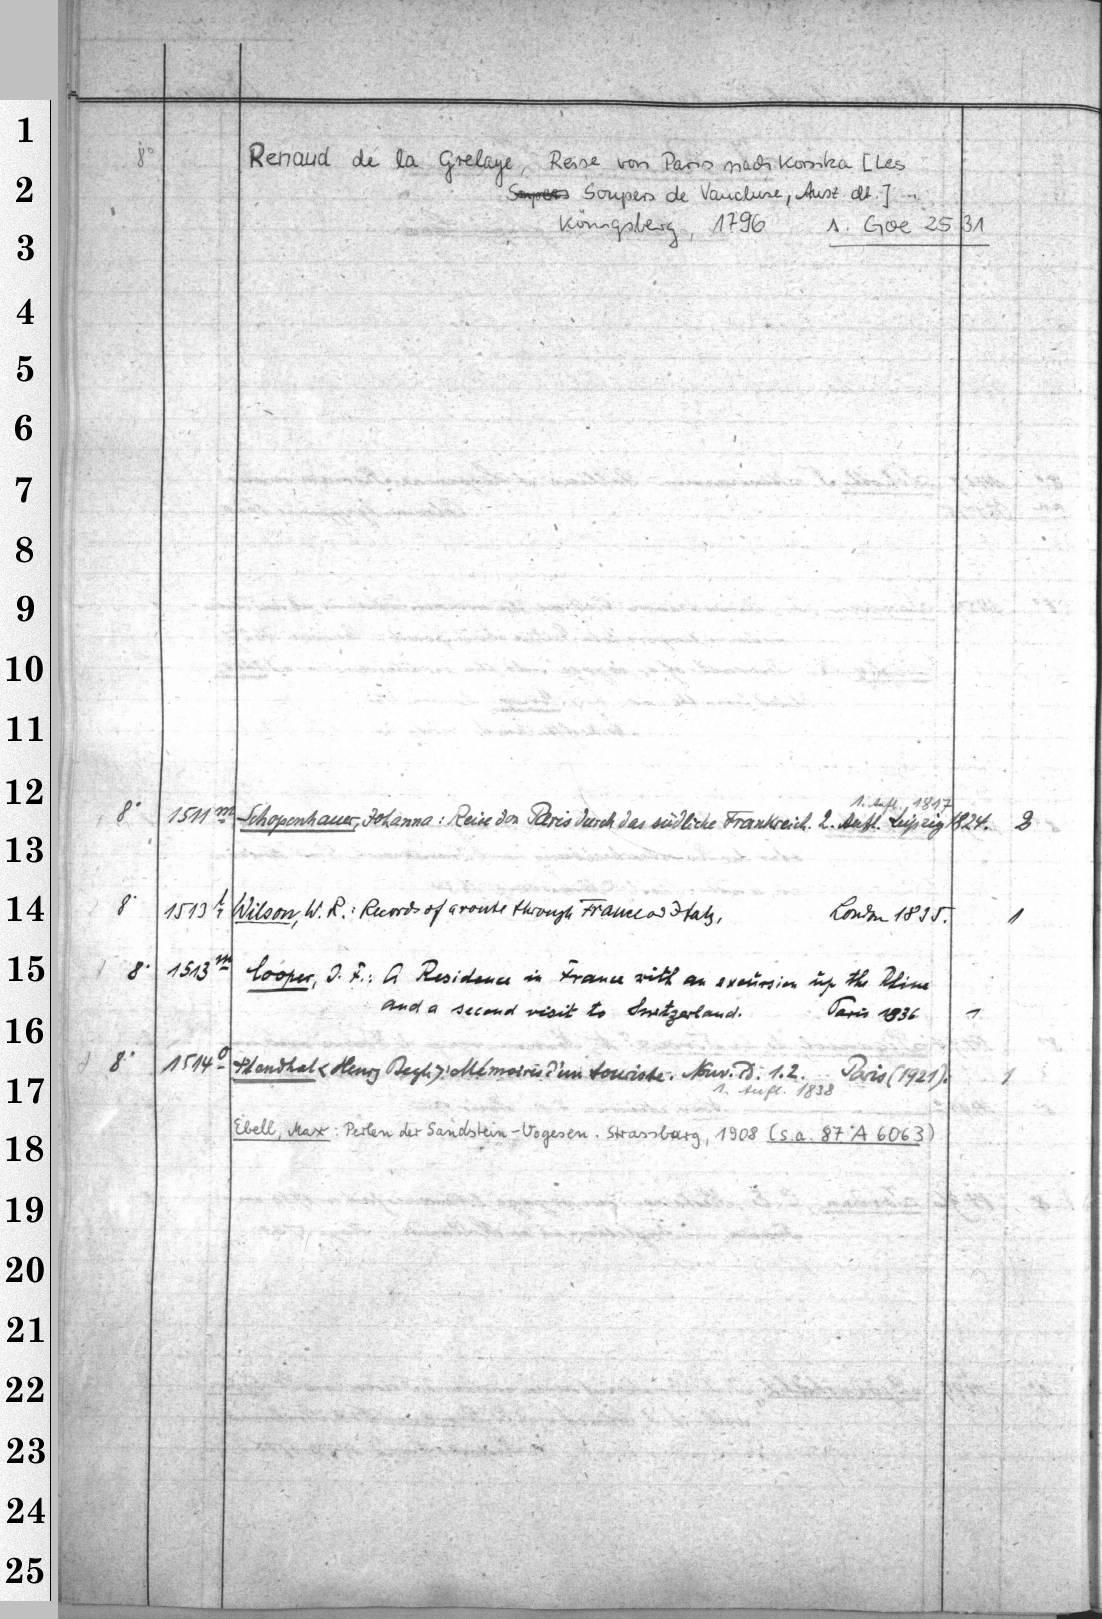 1
8° Renaud de la Grelaye, Reise von Paris nach Korsika [Les
2
Soupers Soupers de Vaucluse, Ausz. dt.] ..
Königsberg, 1796 s. Goe 25 31
3
4
5
6
7
8
9
10
11
12
1. Aufl. 1817
8° 1511 m Schopenhauer, Johanna: Reise von Paris durch das südliche Frankreich. 2. Aufl. Leipzig 1824. 2
13
14 8° 1513 Wilson, W. R.: Records of a route through France and Italy, London 1835. 1
15 8° 1513 m Cooper, J. F.: A Residence in France with an excursion up the Rhine
and a second visit to Switzerland. Paris 1836 1
16
8° 1514 o Stendhal < Henry Beyle >: Mémoires d'un touriste. Nouv. Éd. 1.2. Paris (1921). 1
17
1. Aufl. 1838
Ebell, Max: Perlen der Sandstein-Vogesen. Strassburg, 1908 (s.a. 87 A 6063)
18
19
20
21
22
23
24
25